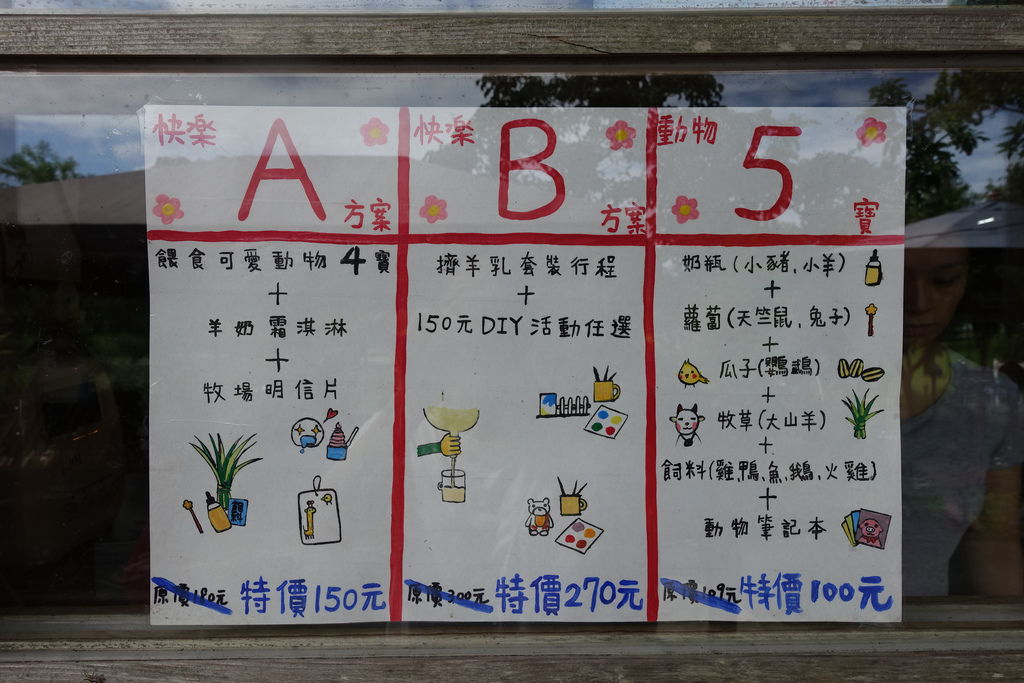 快樂 A 方案
餵食可愛動物4寶
+
羊奶霜淇淋
+
牧場明信片
飼料
原價190元 特價150元
快樂 B 方案
擠羊乳套裝行程
+
150元DIY活動任選
原價300元 特價270元
動物 5 寶
奶瓶(小豬,小羊)
+
蘿蔔(天竺鼠,兔子)
+
瓜子(鸚鵡)
+
牧草(大山羊)
+
飼料(雞,鴨,魚,鵝,火雞)
+
動物筆記本
原價109元 特價100元